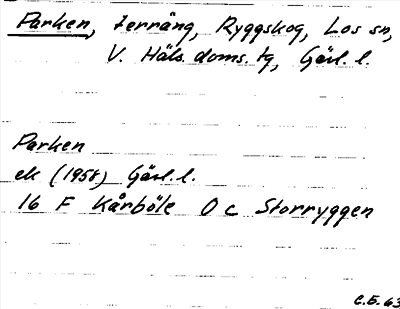 Parken, terräng, Ryggskog, Los sn,
V. Häls. doms. tg, Gävl. l.
Parken
ek (1958) Gävl. l.
16 F Kårböle 0 c Storryggen
C.E. 63